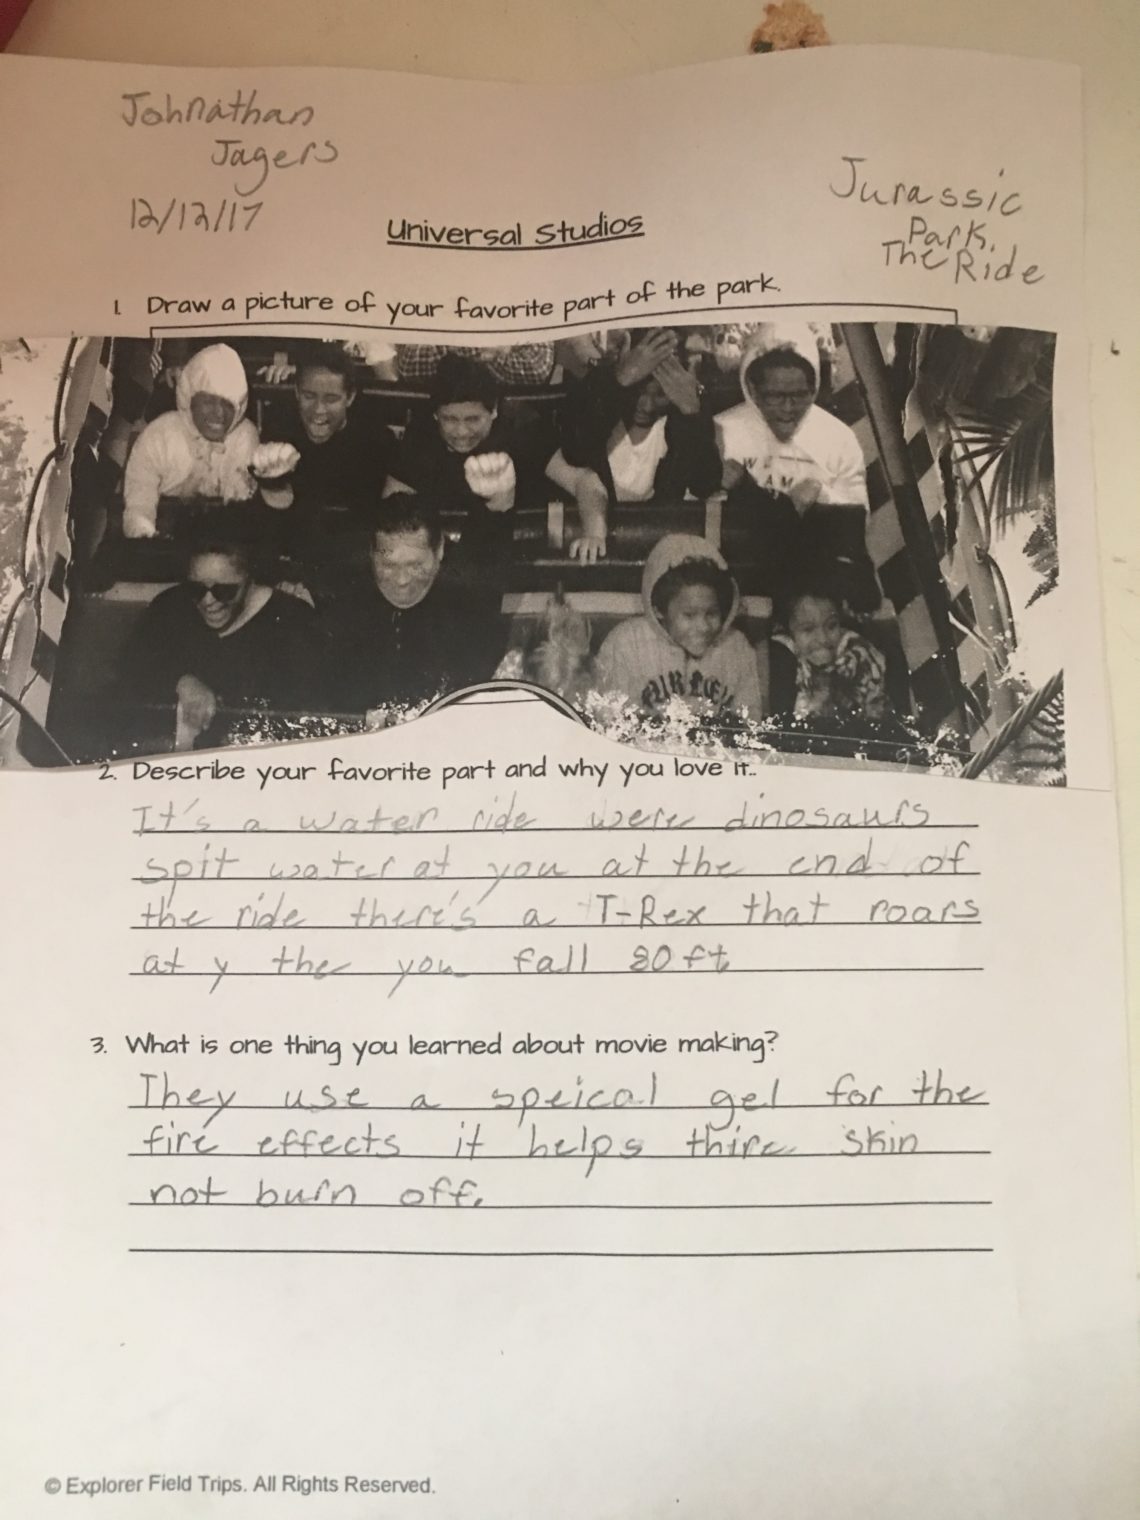 Johnathan
Jagers
12/12/17
Jurassic
Park.
The Ride
Universal Studios
1. Draw a picture of your favorite part of the park.
HURLEY
2. Describe your favorite part and why you love it..
It's a water ride were dinosaurs
spit water at you at the end of
the ride there's a T-Rex that roars
at y the you fall 80 ft
3. What is one thing you learned about movie making?
They use a speical gel for the
fire effects it helps thire skin
not burn off.
© Explorer Field Trips. All Rights Reserved.